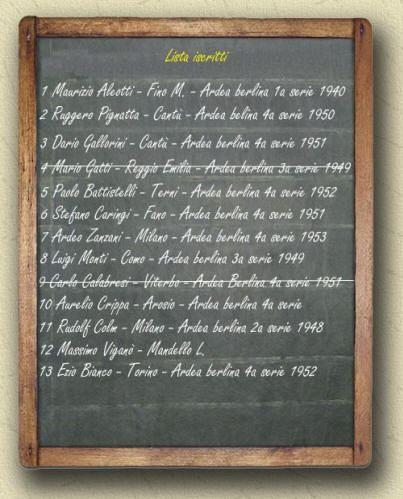 Lista iscritti
1 Maurizio Aleotti - Fino M. - Ardea berlina 1a serie 1940
2 Ruggero Pignatta - Cantù - Ardea belina 4a serie 1950
3 Dario Gallorini - Cantù - Ardea berlina 4a serie 1951
4 Mario Gatti - Reggio Emilia - Ardea berlina 3a serie 1949
5 Paolo Battistelli - Terni - Ardea berlina 4a serie 1952
6 Stefano Caringi - Fano - Ardea berlina 4a serie 1951
7 Ardeo Zanzani - Milano - Ardea berlina 4a serie 1953
8 Luigi Monti - Como - Ardea berlina 3a serie 1949
9 Carlo Calabresi - Viterbo - Ardea Berlina 4a serie 1951
10 Aurelio Crippa - Arosio - Ardea berlina 4a serie
11 Rudolf Colm - Milano - Ardea berlina 2a serie 1948
12 Massimo Viganò - Mandello L.
13 Ezio Bianco - Torino - Ardea berlina 4a serie 1952